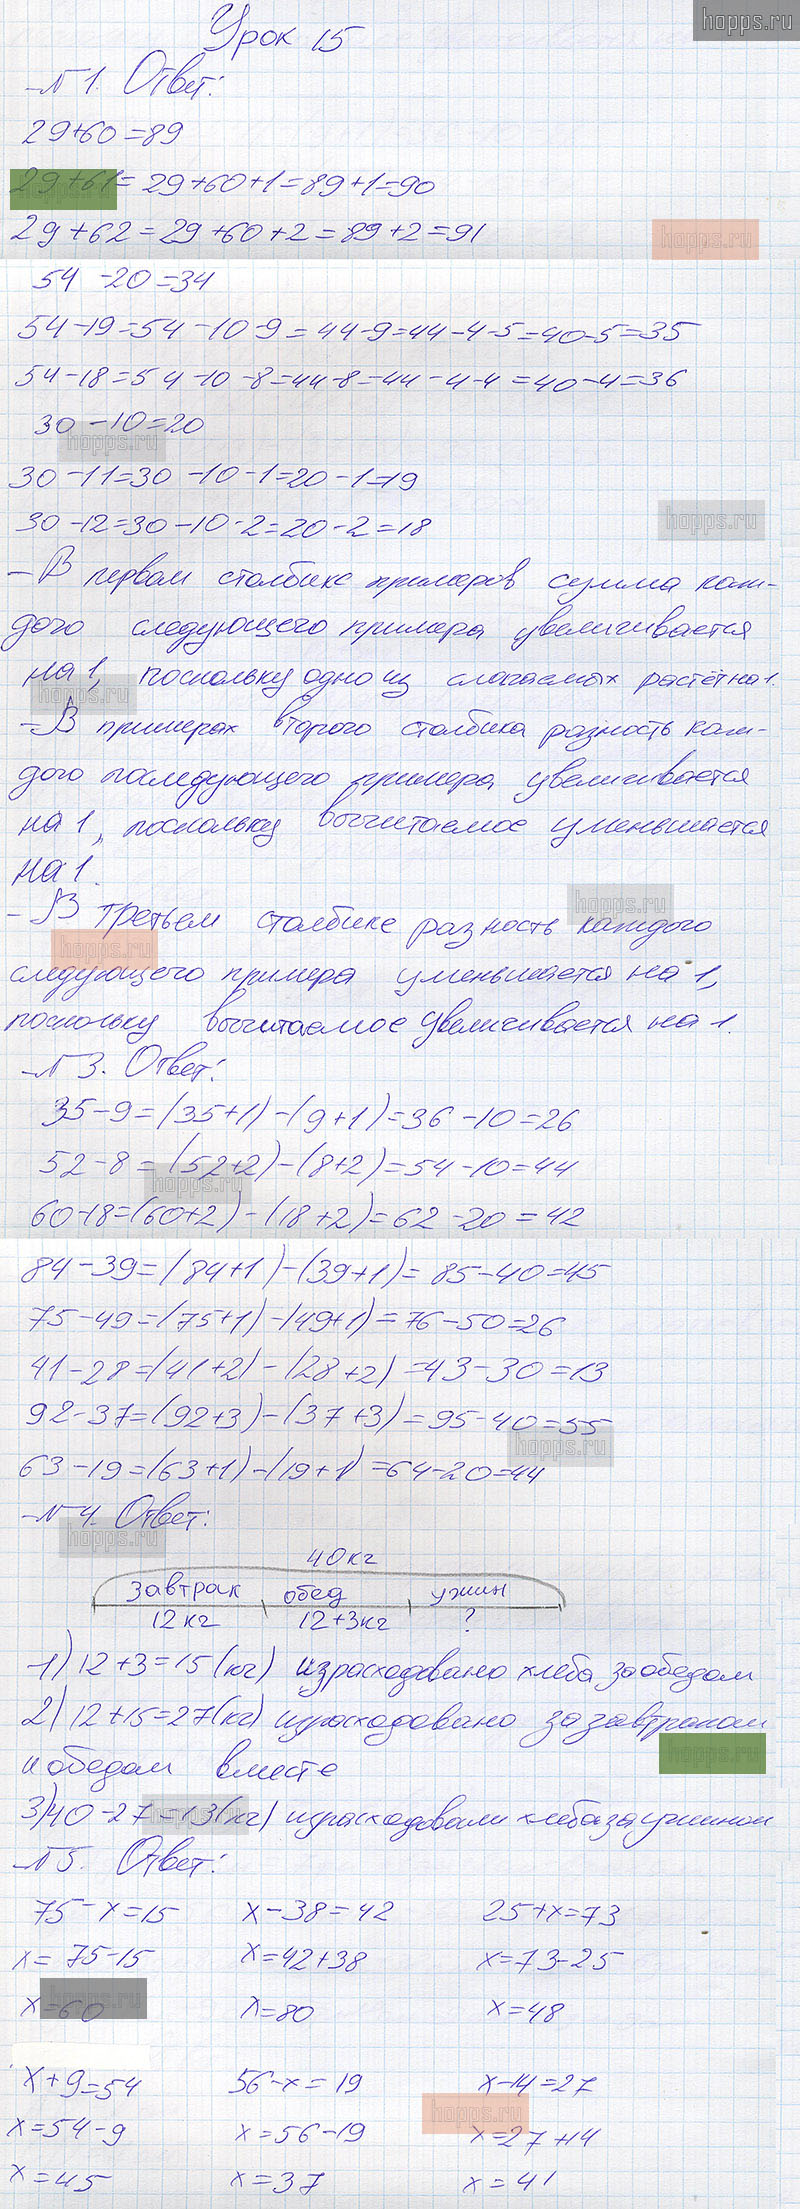 hopps.ru
Урок 15
№ 1. Ответ:
29+60=89
29+61=29+60+1=89+1=90
29+62=29+60+2=89+2=91
hopps.ru
54-20=34
54-19=54-10-9=44-9=44-4-5=40-5=35
54-18=54-10-8=44-8=44-4-4=40-4=36
30-10=20
hopps.ru
30-11=30-10-1=20-1=19
30-12=30-10-2=20-2=18
hopps.ru
-В первом столбике примеров сумма каж-
дого следующего примера увеличивается
на 1, поскольку одно из слагаемых растёт на 1.
hopps.ru
-В примерах второго столбика разность каж-
дого последующего примера увеличивается
на 1, поскольку вычитаемое уменьшается
на 1.
hopps.ru
-В третьем столбике разность каждого
hopps.ru
следующего примера уменьшается на 1,
поскольку вычитаемое увеличивается на 1.
№ 3. Ответ:
35-9=(35+1)-(9+1)=36-10=26
52-8=(52+2)-(8+2)=54-10=44
hopps.ru
60-18=(60+2)-(18+2)=62-20=42
84-39=(84+1)-(39+1)=85-40=45
75-49=(75+1)-(49+1)=76-50=26
41-28=(41+2)-(28+2)=43-30=13
92-37=(92+3)-(37+3)=95-40=55
hopps.ru
63-19=(63+1)-(19+1)=64-20=44
№ 4. Ответ:
hopps.ru
40кг
завтрак обед ужин
12кг 12+3кг ?
1) 12+3=15(кг) израсходовано хлеба за обедом
2) 12+15=27(кг) израсходовано за завтраком
hopps.ru
и обедом вместе
3) 40-27=13(кг) израсходовали хлеба за ужином
hopps.ru
№ 5. Ответ:
75-х=15 х-38=42 25+х=73
х=75-15 х=42+38 х=73-25
х=60 х=80 х=48
hopps.ru
х+9=54 56-х=19 х-14=27
х=54-9 х=56-19 х=27+14
hopps.ru
х=45 х=37 х=41